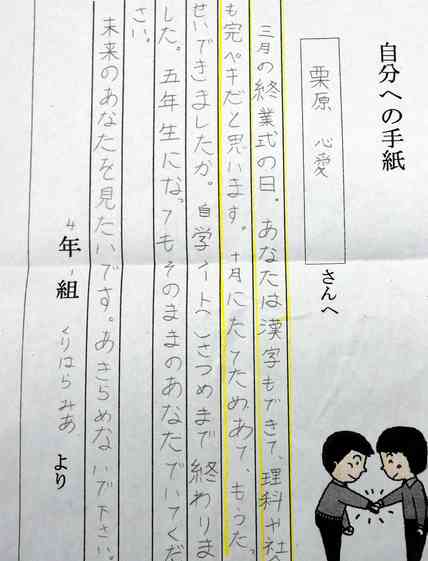 自分への手紙
栗原 心愛 さんへ
三月の終業式の日。あなたは漢字もできて、理科や社会
も完ペキだと思います。十月にたてためあて、もうたっ
せいできましたか。自学ノートへ さつめまで終わりま
した。五年生になってもそのままのあなたでいてくだ
さい。
未来のあなたを見たいです。あきらめないで下さい。
4年1組 くりはら みあ より